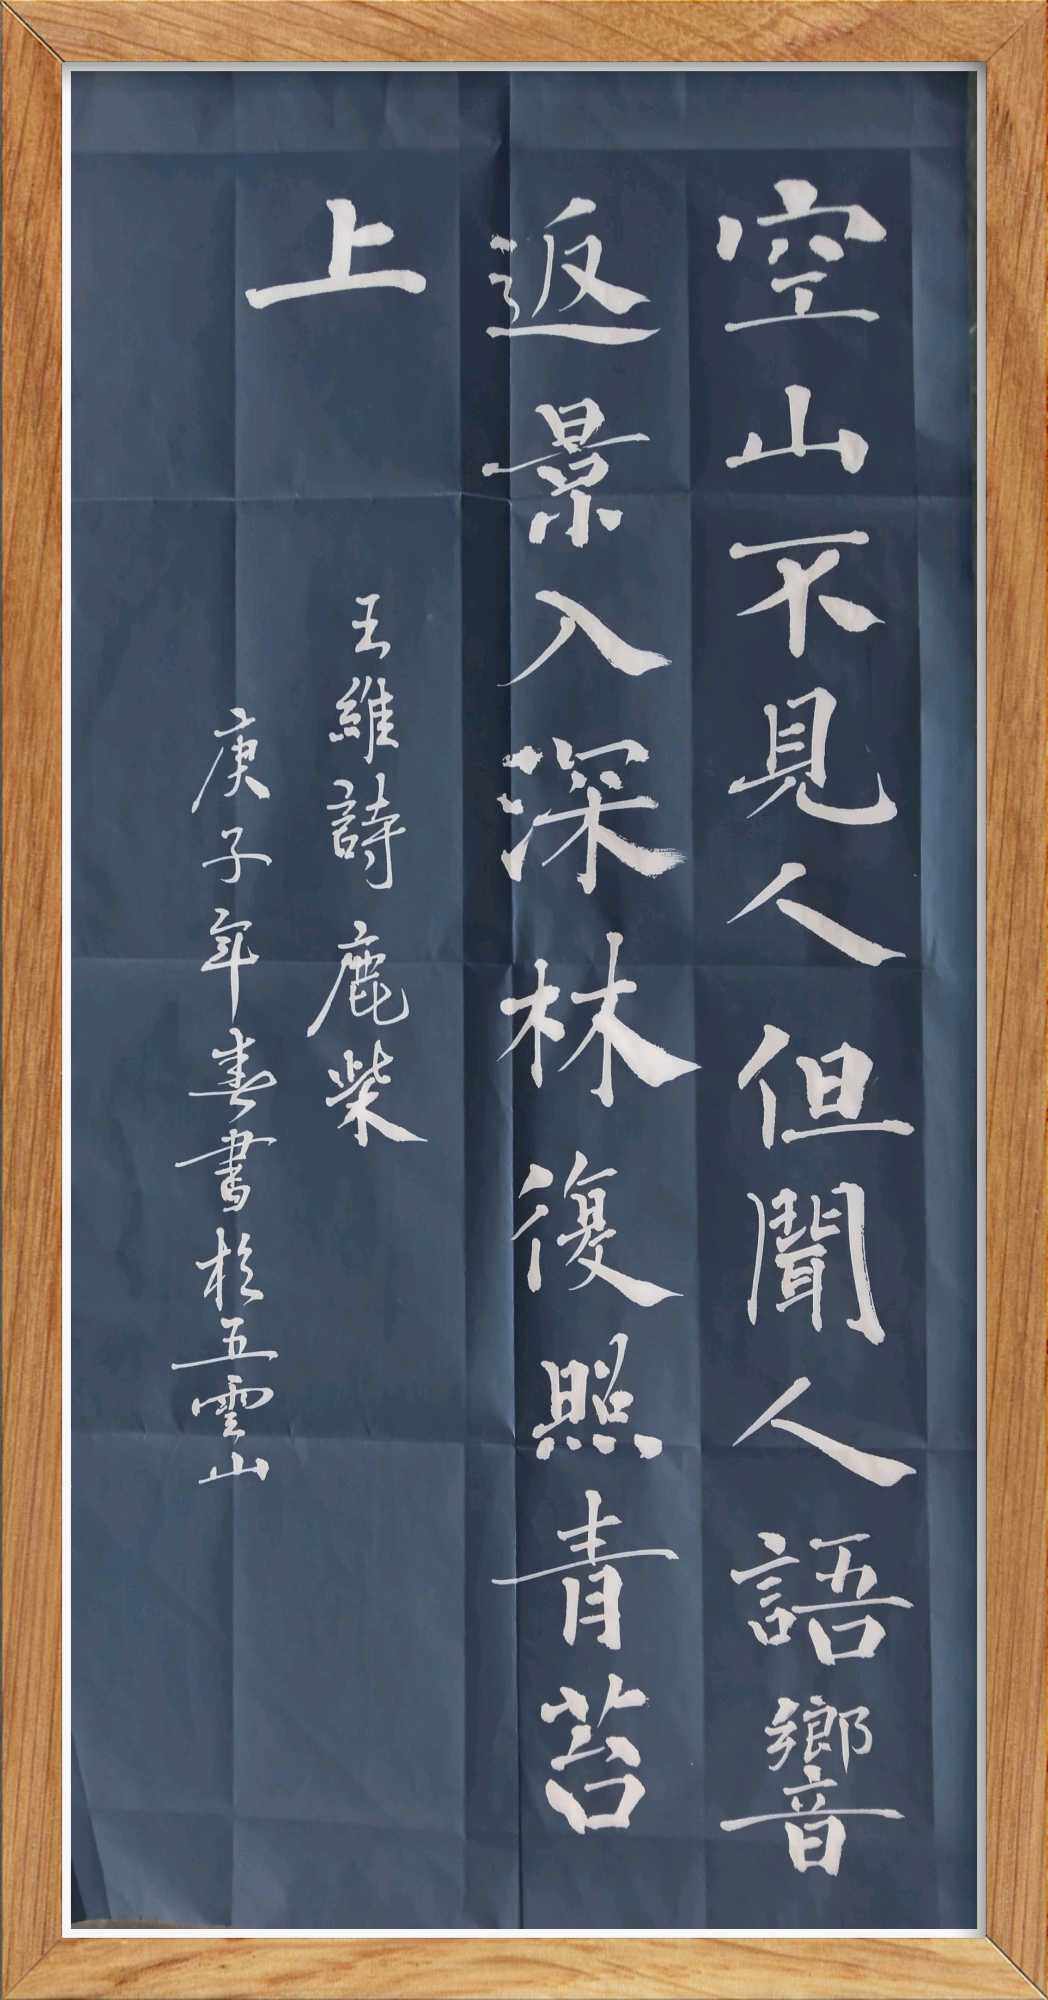 空山不見人但聞人語響
返景入深林復照青苔
上
王維詩鹿柴
庚子年春書於五雲山